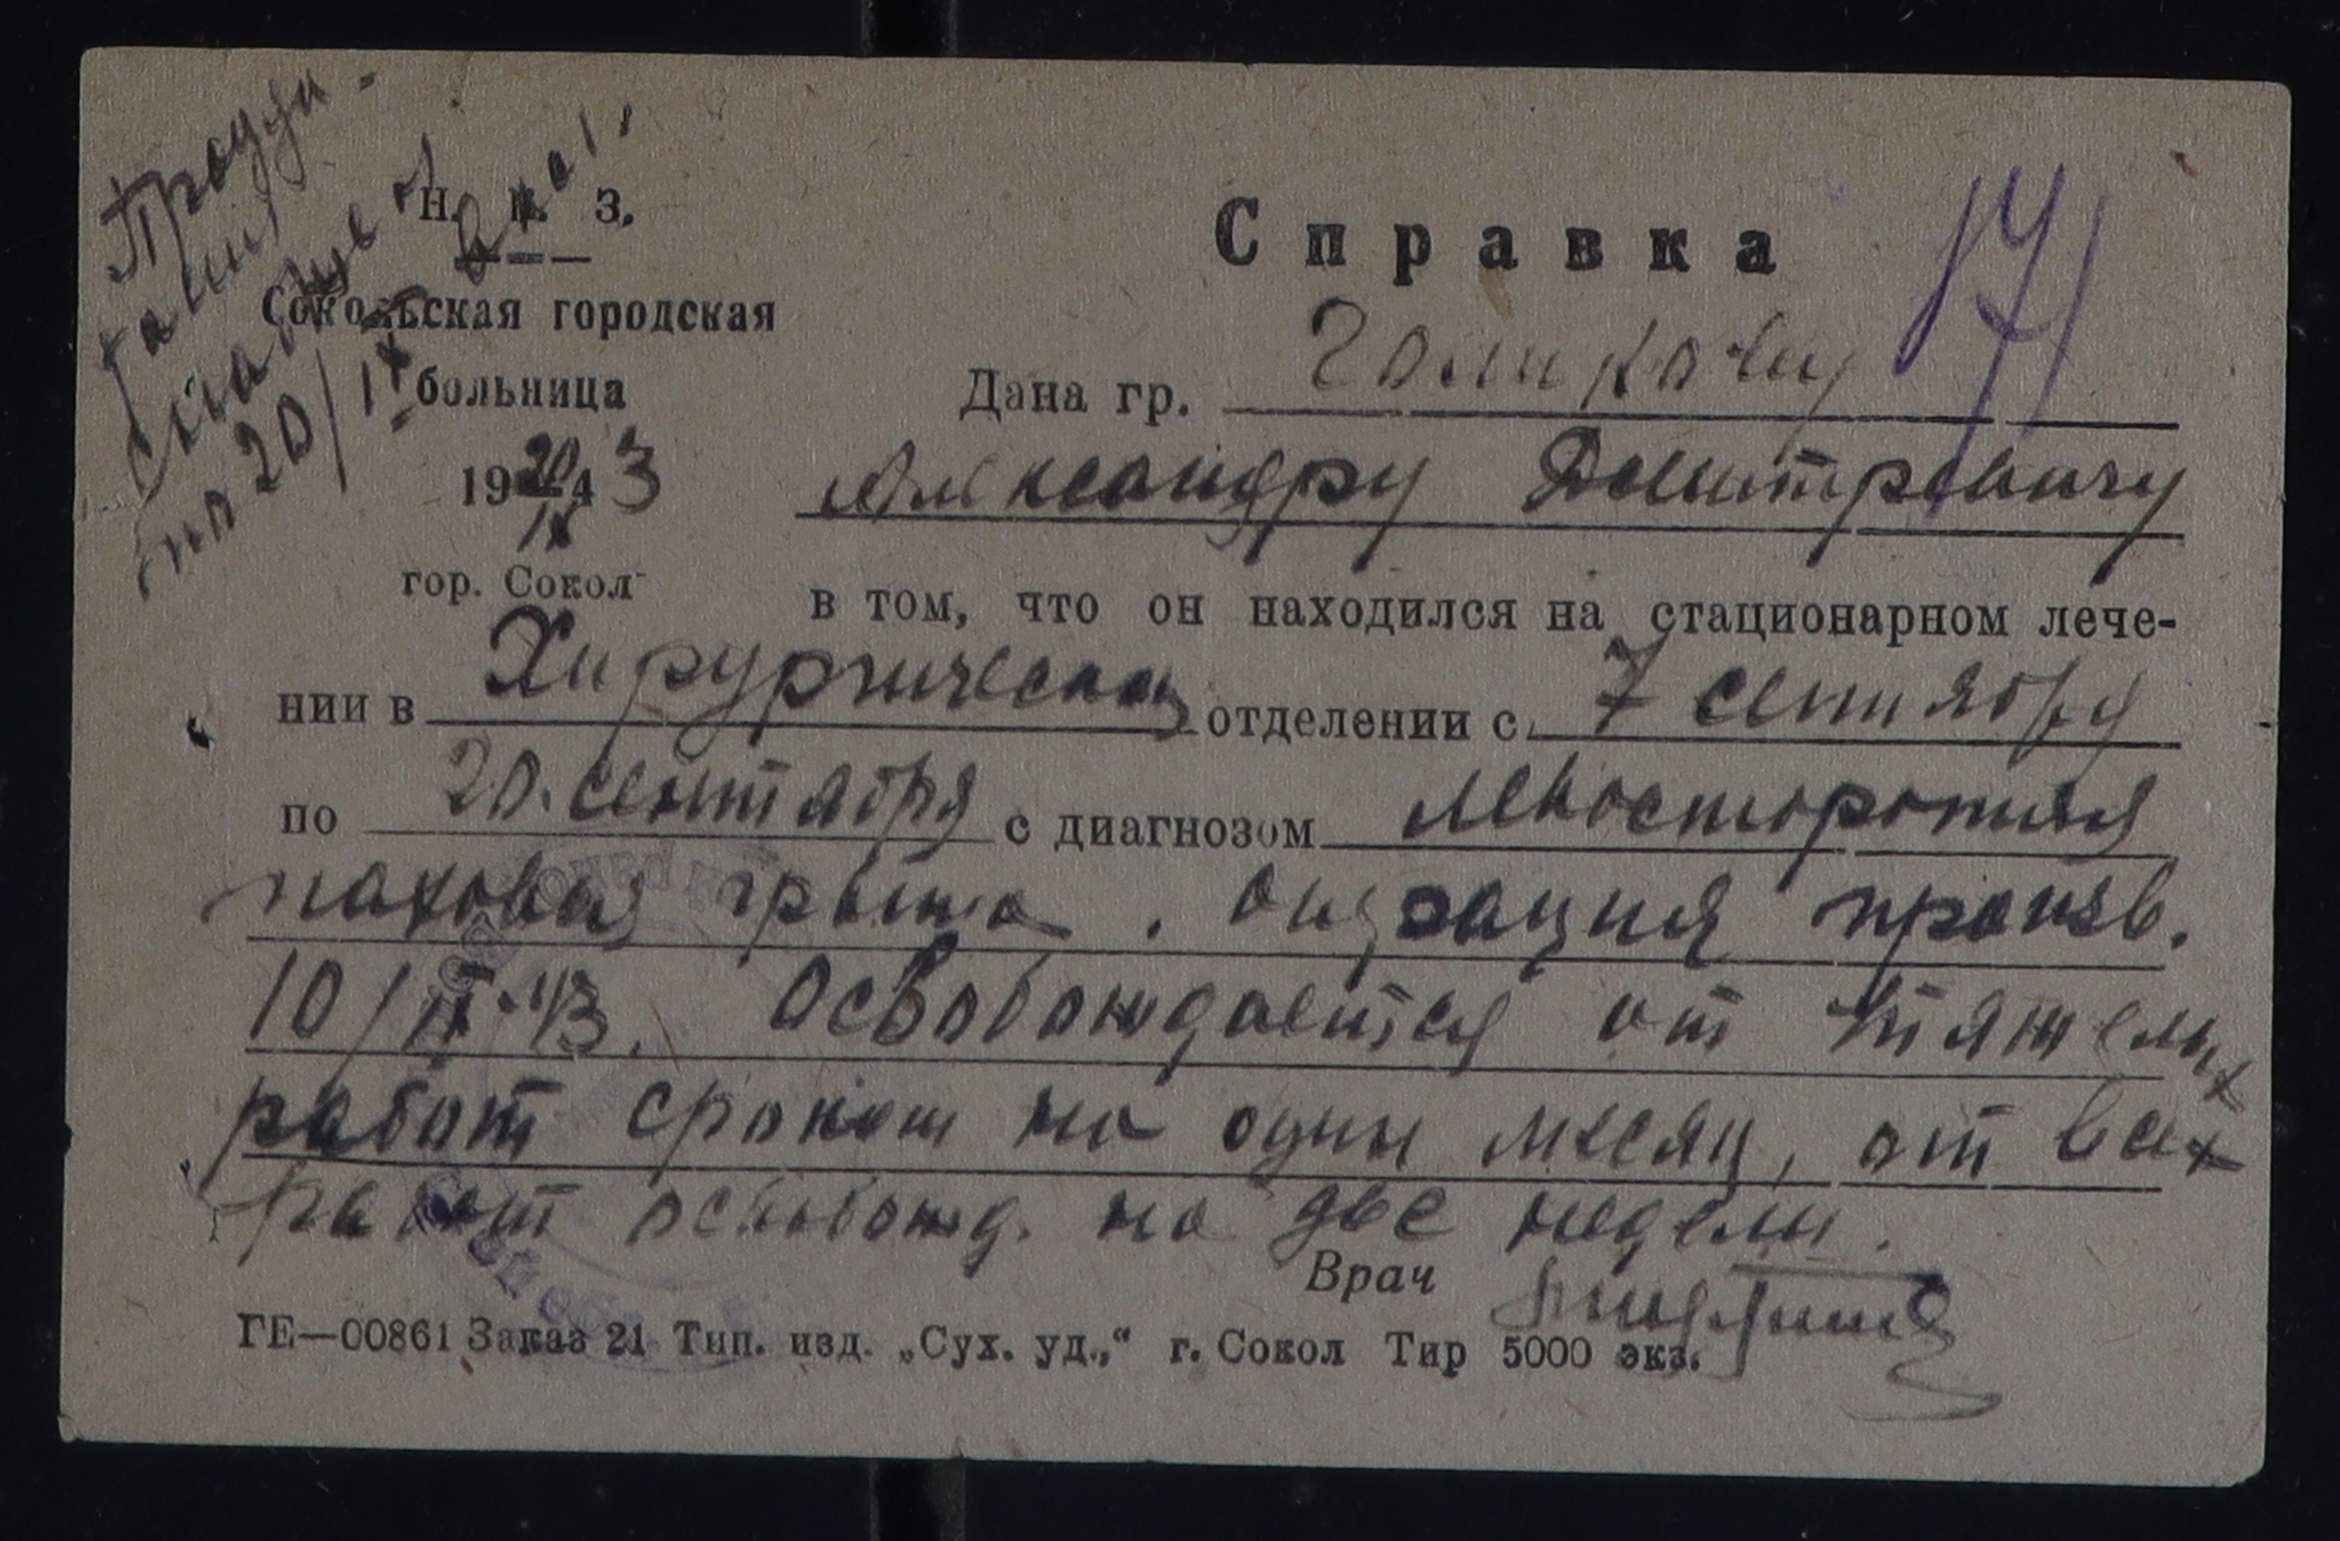 Н. К. З.
Сокольская городская
больница
20/IX 1943
гор. Сокол
по 20/IX
Справка
171
Дана гр. Голикову
Александру Дмитревичу
в том, что он находился на стационарном лече-
нии в Хирургическом отделении с 7 сентября
по 20. сентября с диагнозом левосторонняя
паховая грыжа. операция произв.
10/IX-43. Освобождается от тяжелых
работ сроком на один месяц, от всех
работ освобожд. на две недели.
Врач
ГЕ—00861 Заказ 21 Тип. изд. „Сух. уд.,“ г. Сокол Тир 5000 экз.